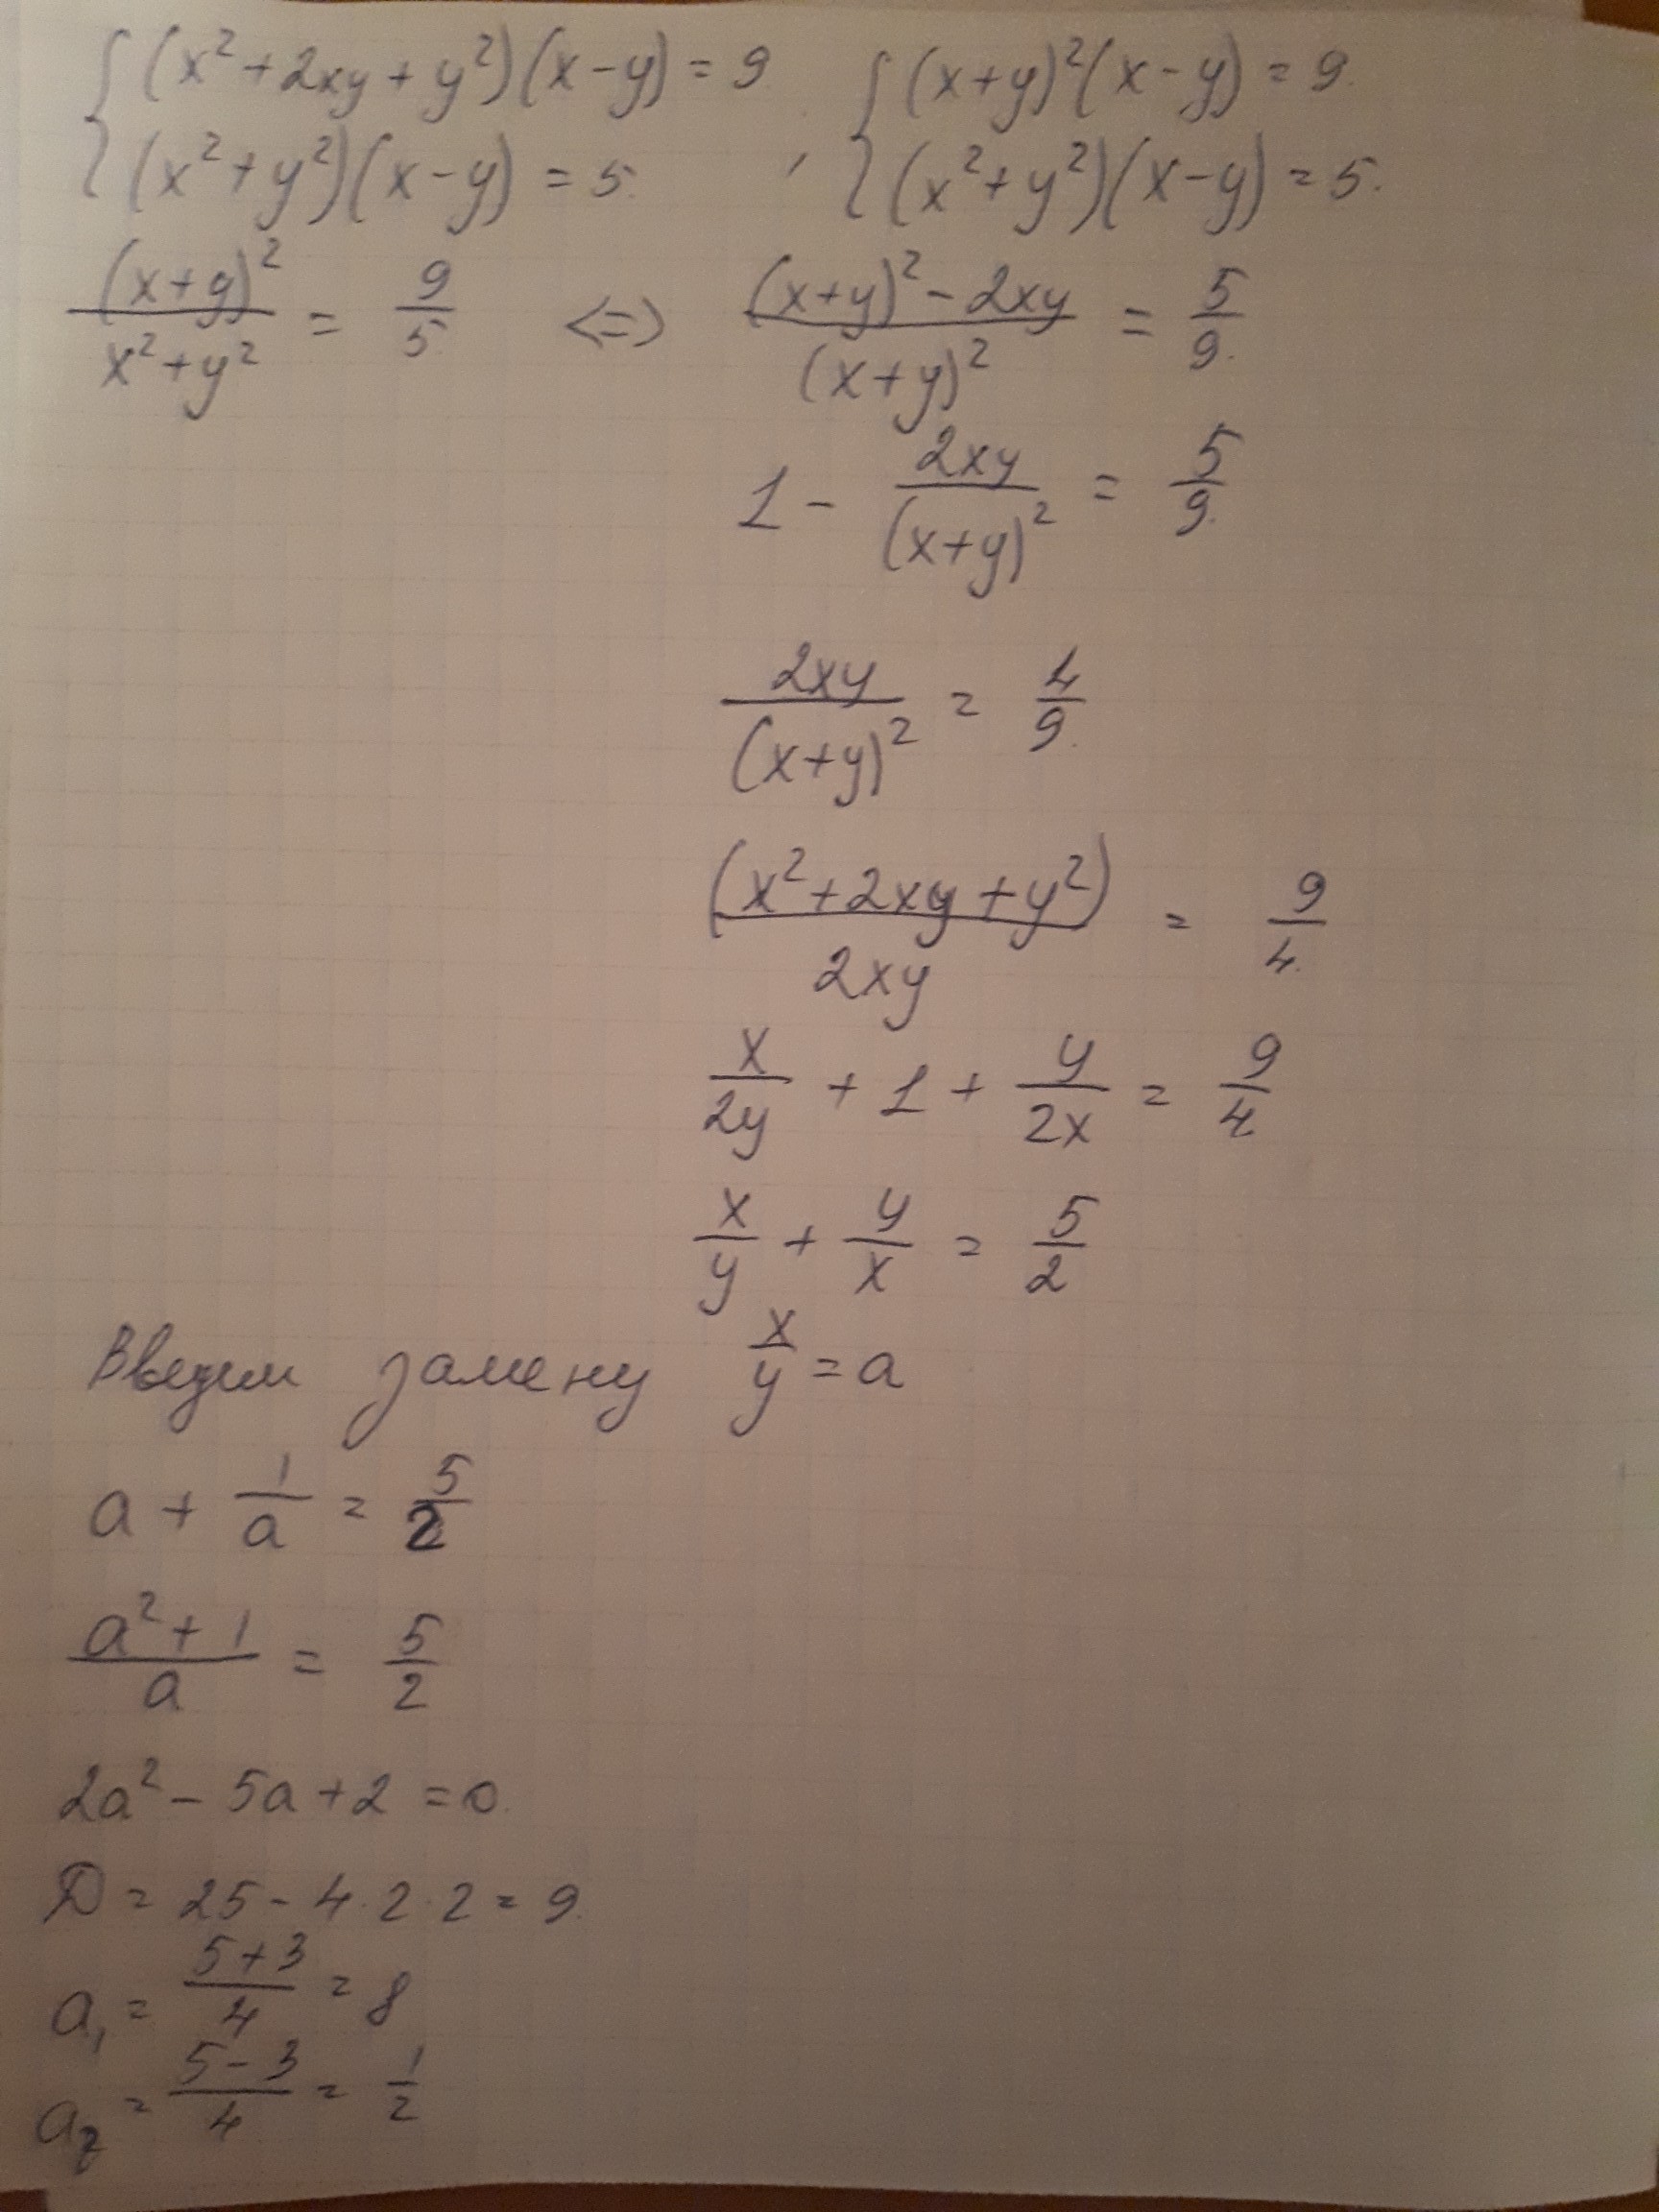 { (x² + 2xy + y²)(x - y) = 9 , { (x + y)²(x - y) = 9.
(x² + y²)(x - y) = 5. (x² + y²)(x - y) = 5.
(x + y)² / (x² + y²) = 9/5 <=> ((x + y)² - 2xy) / (x + y)² = 5/9.
1 - 2xy / (x + y)² = 5/9.
2xy / (x + y)² = 4/9.
(x² + 2xy + y²) / 2xy = 9/4.
x/2y + 1 + y/2x = 9/4
x/y + y/x = 5/2
Введем замену x/y = a
a + 1/a = 5/2
(a² + 1)/a = 5/2
2a² - 5a + 2 = 0.
D = 25 - 4·2·2 = 9.
a₁ = (5 + 3)/4 = 8
a₂ = (5 - 3)/4 = 1/2